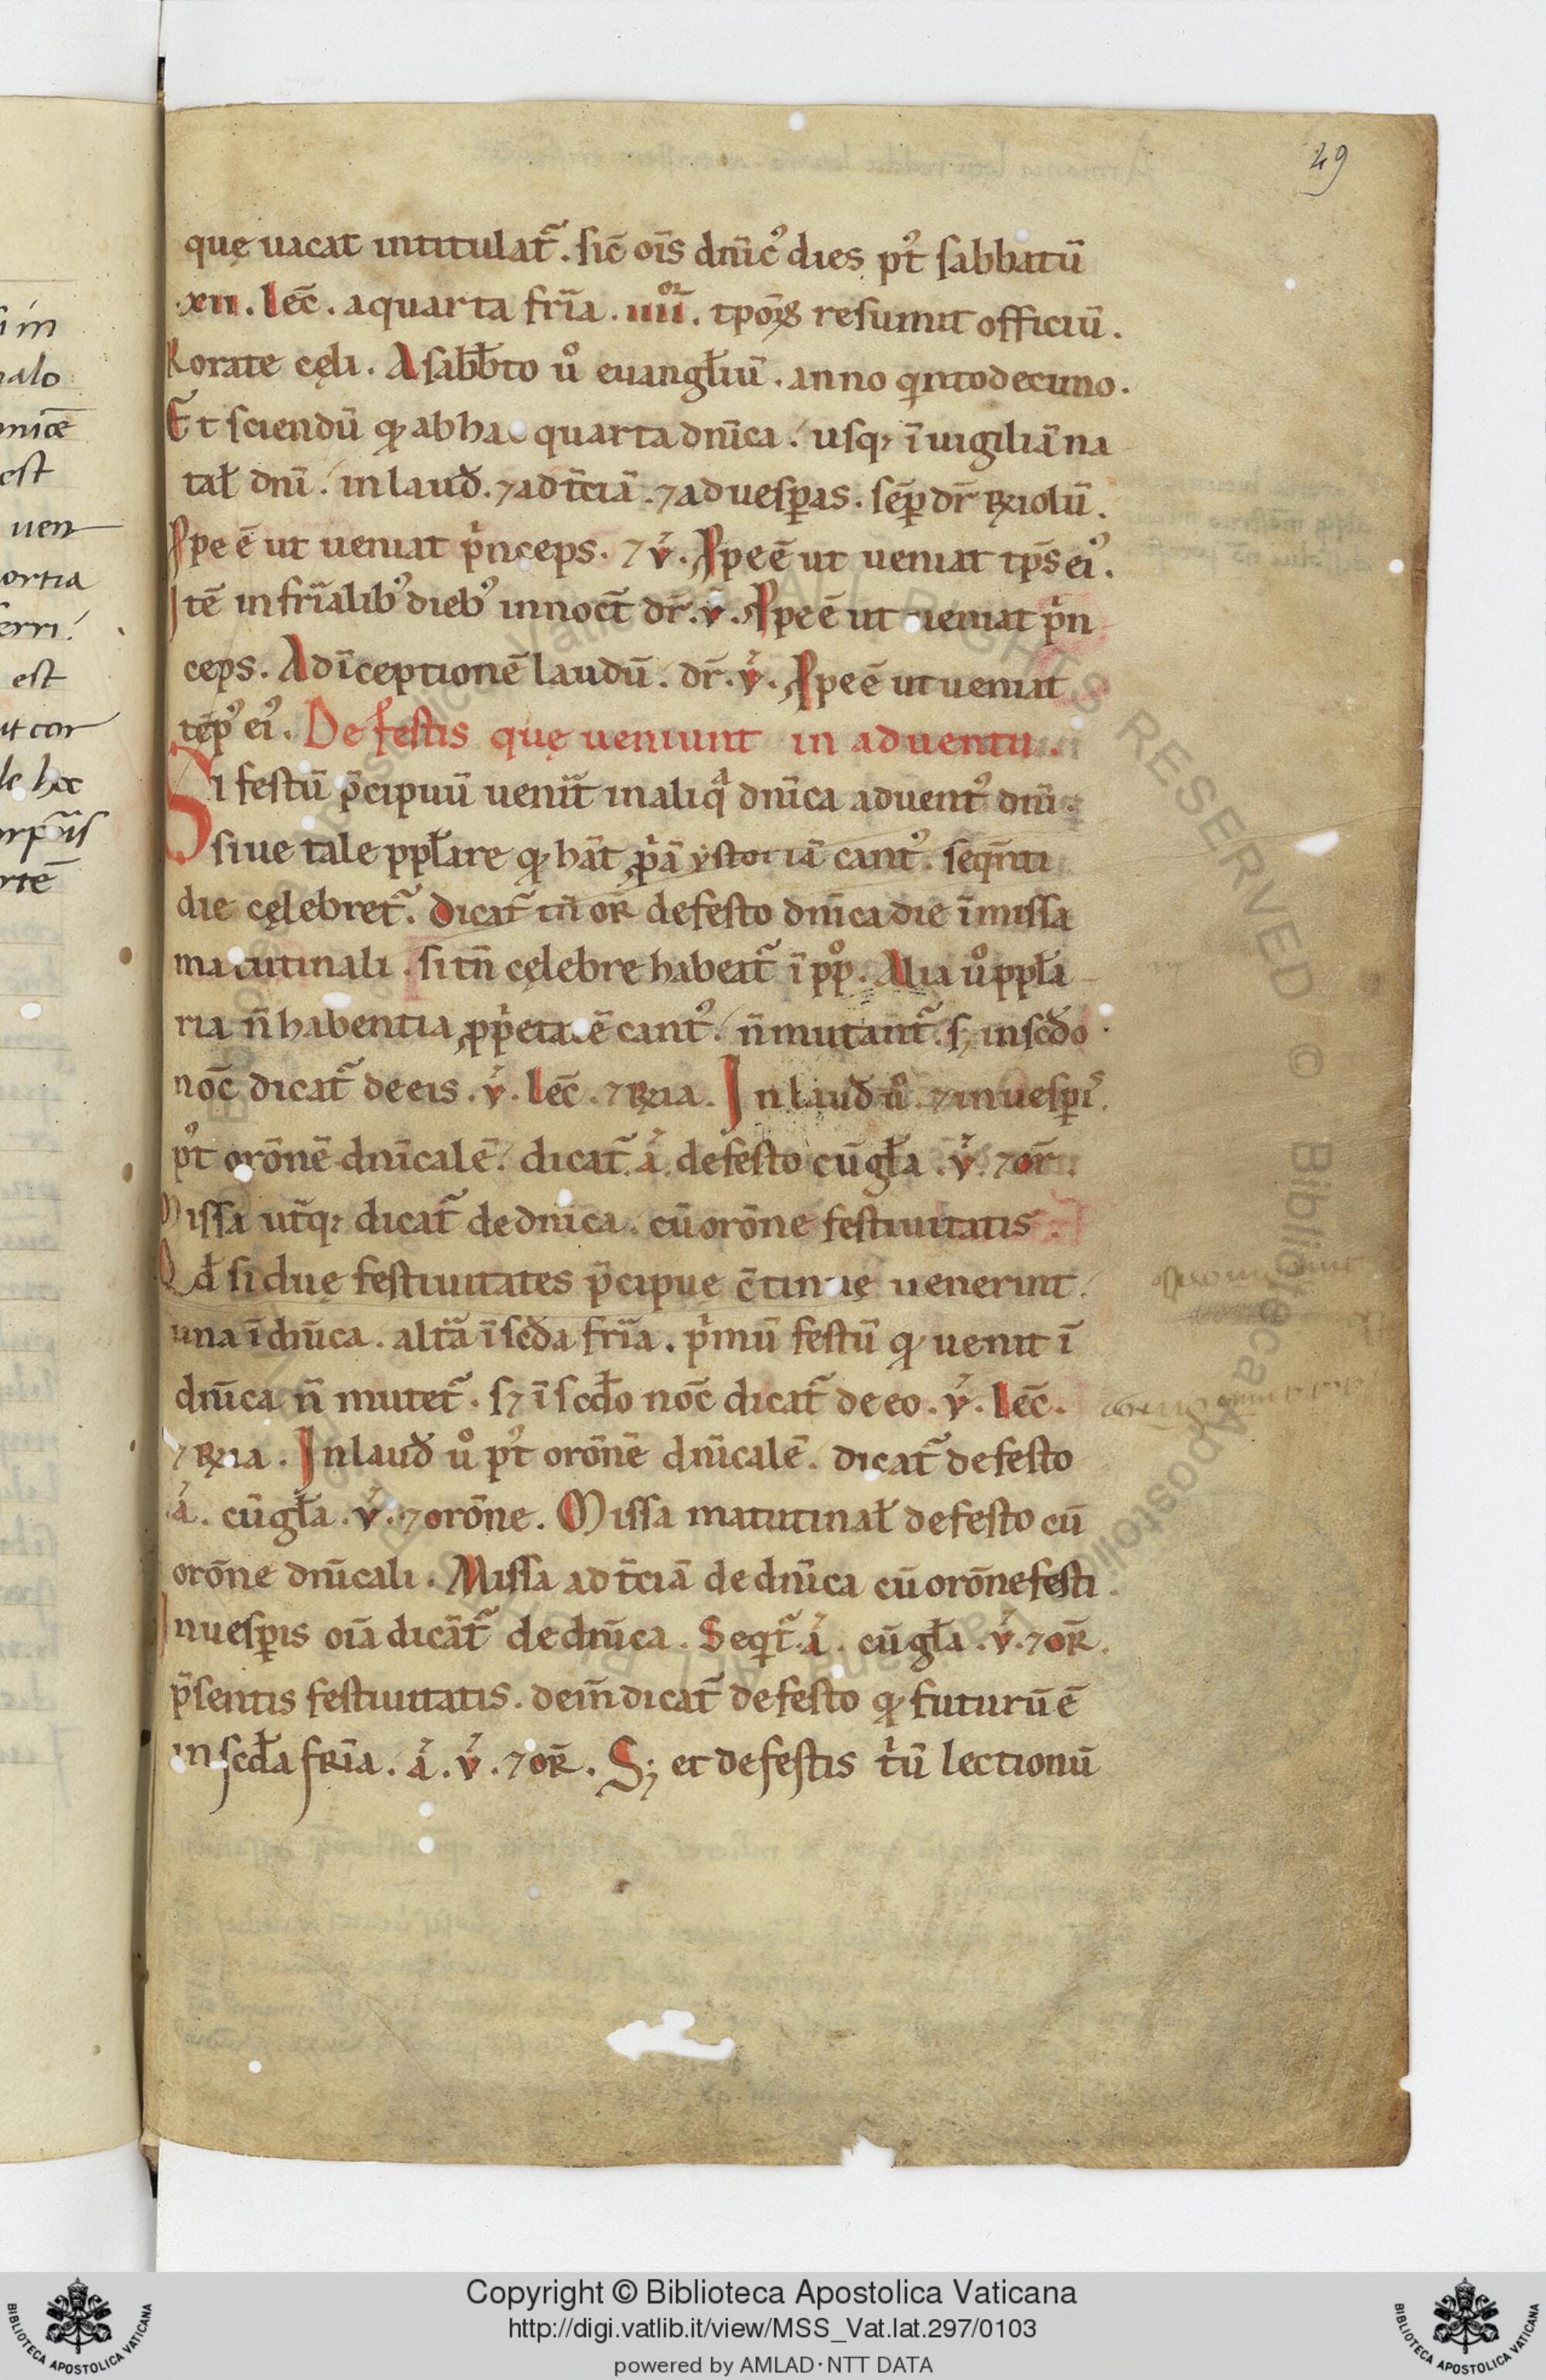 49
quę uacat intitulat᷑. sic̄ oīs dn̄icꝰ dies pꝰt sabbatū
xii. lec̄. a quarta fr̄ia. iiii^or. tp̄oꝝ resumit officiū.
Rorate cęli. A sabb̄to u° euangłiū. anno q̇ntodecimo.
Et sciendū qd̵ ab hac quarta dn̄ica. usq; ī uigiliā na
tał dn̄i. in laud̄. ⁊ ad t̄ciā. ⁊ ad uesꝑas. sēꝑ dr̄ ꝶiolū.
Ipe ē ut ueniat ṗnceps. ⁊ v̇. Ipe ē ut ueniat tp̄s eiꝰ.
Itē in fr̄ialibꝰ diebꝰ in noct̄ dr̄. v̇. Ipe ē ut ueniat ṗn
ceps. Ad īceptionē laudū. dr̄. v̇. Ipe ē ut ueniat
tēpꝰ eiꝰ. De festis quę ueniunt in aduentu.
Si festū p̄cipuū uenit̄ in aliq̇ dn̄ica aduentꝰ dn̄i.
siue tale ppłare qd̵ hāt ꝓṗā ystoriā cantꝰ. seq̄nti
die cęlebret᷑. dicat᷑ tn̄ or̄ de festo dn̄ica die ī missa
matutinali. si tn̄ cęlebre habeat᷑ ī pp°. Alia u° ppła
ria n̄ habentia ꝓṗeta.ē cantꝰ. n̄ mutant᷑. sꝫ in scd̄o
noc̄ dicat᷑ de eis. v̇. lec̄. ⁊ ꝶia. In laud̄ u°. ⁊ in uesꝑis.
pꝰt orōnē dn̄icalē. dicat᷑ ȧ. de festo cū gła. v̇. ⁊ or̄.
Missa ut̄q; dicat᷑ de dn̄ica. cū orōne festiuitatis.
Qd̵ si duę festiuitates p̄cipue c̄tinuę uenerint.
una ī dn̄ica. alt̄a ī scd̄a fr̄ia. ṗmū festū qd̵ uenit ī
dn̄ica n̄ mutet᷑. sꝫ ī scd̄o noc̄ dicat᷑ de eo. v̇. lec̄.
⁊ ꝶia. In laud̄ u° pꝰt orōnē dn̄icalē. dicat᷑ de festo
ȧ. cū gła. v̇. ⁊ orōne. Missa matutinał de festo cū
orōne dn̄icali. Missa ad t̄ciā de dn̄ica cū orōne festi.
In uesꝑis oīa dicāt᷑ de dn̄ica. Seqt᷑. ȧ. cū gła. v̇. ⁊ or̄.
p̄sentis festiuitatis. dein̄ dicat᷑ de festo qd̵ futurū ē
in scd̄a fr̄ia. ȧ. v̇. ⁊ or̄. Sꝫ et de festis ṫū lectionū
Copyright © Biblioteca Apostolica Vaticana
http://digi.vatlib.it/view/MSS_Vat.lat.297/0103
powered by AMLAD·NTT DATA